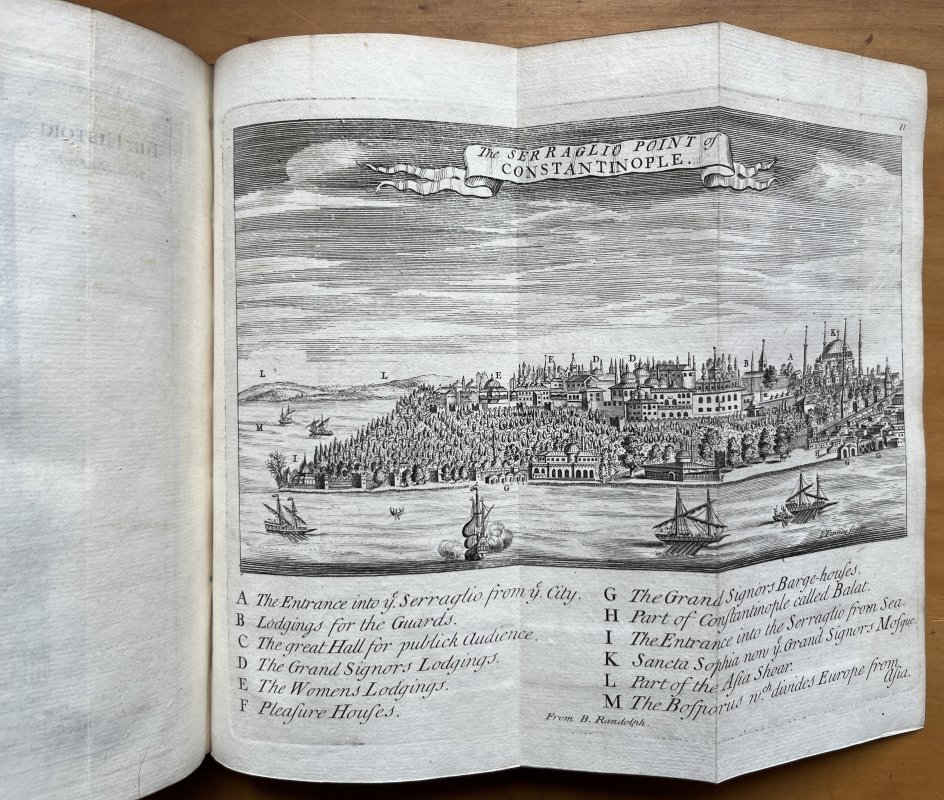 11
The SERRAGLIO POINT of
CONSTANTINOPLE.
K
E D D B A
L L E
M
I
G G
G
A The Entrance into yᵉ. Serraglio from yᵉ. City.
B Lodgings for the Guards.
C The great Hall for publick Audience.
D The Grand Signors Lodgings.
E The Womens Lodgings.
F Pleasure Houses.
G The Grand Signors Barge-houses.
H Part of Constantinople called Balat.
I The Entrance into the Serraglio from Sea.
K Sancta Sophia now yᵉ. Grand Signors Mosque.
L Part of the Asia Shoar.
M The Bosporus wᶜʰ. divides Europe from
Asia.
From B. Randolph.